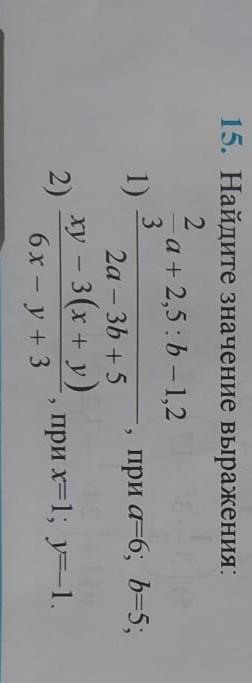 15. Найдите значение выражения:
1) (2/3 a + 2,5 : b – 1,2) / (2a – 3b + 5), при a=6; b=5;
2) (xy – 3(x + y)) / (6x – y + 3), при x=1; y=–1.